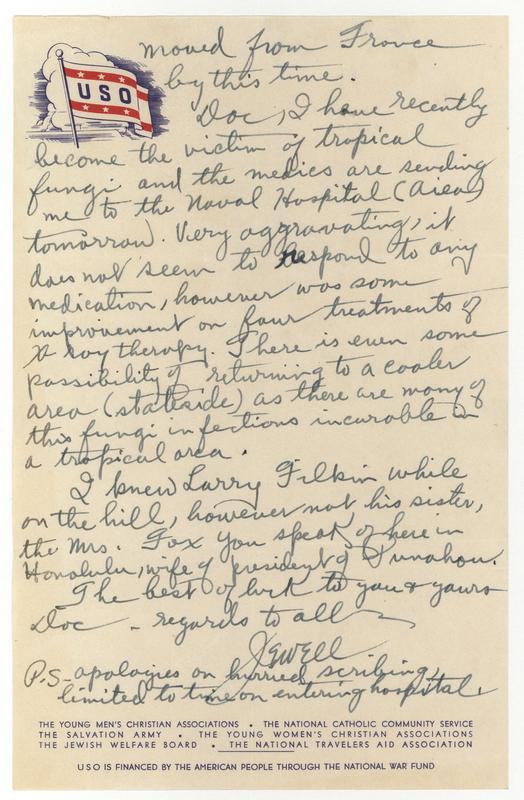 moved from France
by this time.
USO
Doc, I have recently
become the victim of tropical
fungi and the medics are sending
me to the Naval Hospital (Area)
tomorrow. Very aggravating, it
does not seem to respond to any
medication, however was some
improvement on four treatments of
X ray therapy. There is even some
possibility of returning to a cooler
area (stateside) as there are many of
this fungi infections incurable in
a tropical area.
I knew Larry Filkin while
on the hill, however not his sister,
the Mrs. Fox you speak of here in
Honolulu, wife of president of Punahou.
The best of luck to you & yours
Doc - regards to all
JEWELL
P.S- apologies on hurried scribing,
limited to time on entering hospital.
THE YOUNG MEN'S CHRISTIAN ASSOCIATIONS • THE NATIONAL CATHOLIC COMMUNITY SERVICE
THE SALVATION ARMY • THE YOUNG WOMEN'S CHRISTIAN ASSOCIATIONS
THE JEWISH WELFARE BOARD • THE NATIONAL TRAVELERS AID ASSOCIATION
USO IS FINANCED BY THE AMERICAN PEOPLE THROUGH THE NATIONAL WAR FUND